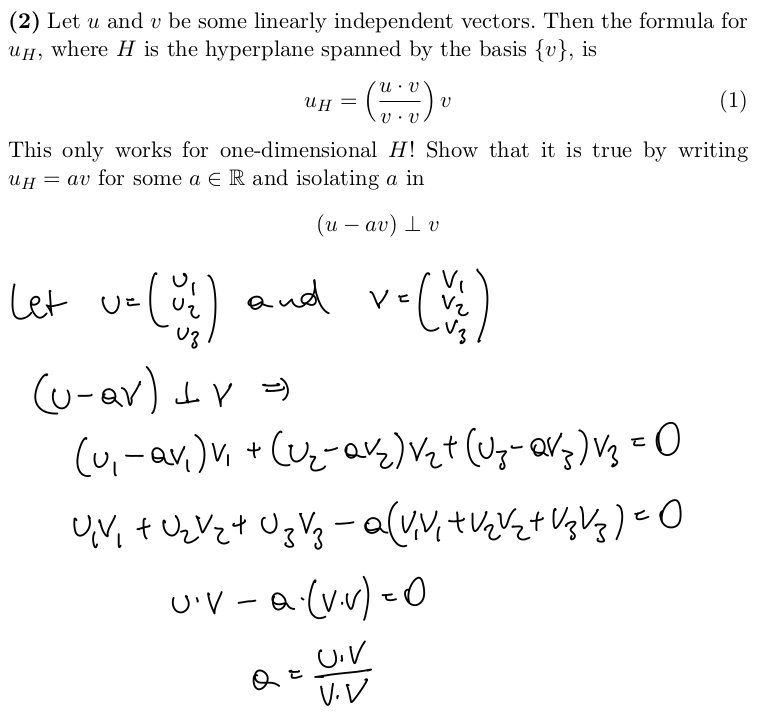 (2) Let u and v be some linearly independent vectors. Then the formula for
u_H, where H is the hyperplane spanned by the basis {v}, is
u_H = (u · v / v · v) v (1)
This only works for one-dimensional H! Show that it is true by writing
u_H = av for some a ∈ ℝ and isolating a in
(u − av) ⊥ v
Let u = (u₁ u₂ u₃) and v = (v₁ v₂ v₃)
(u − av) ⊥ v ⇒
(u₁ − av₁)v₁ + (u₂ − av₂)v₂ + (u₃ − av₃)v₃ = 0
u₁v₁ + u₂v₂ + u₃v₃ − a(v₁v₁ + v₂v₂ + v₃v₃) = 0
u·v − a·(v·v) = 0
a = u·v / v·v